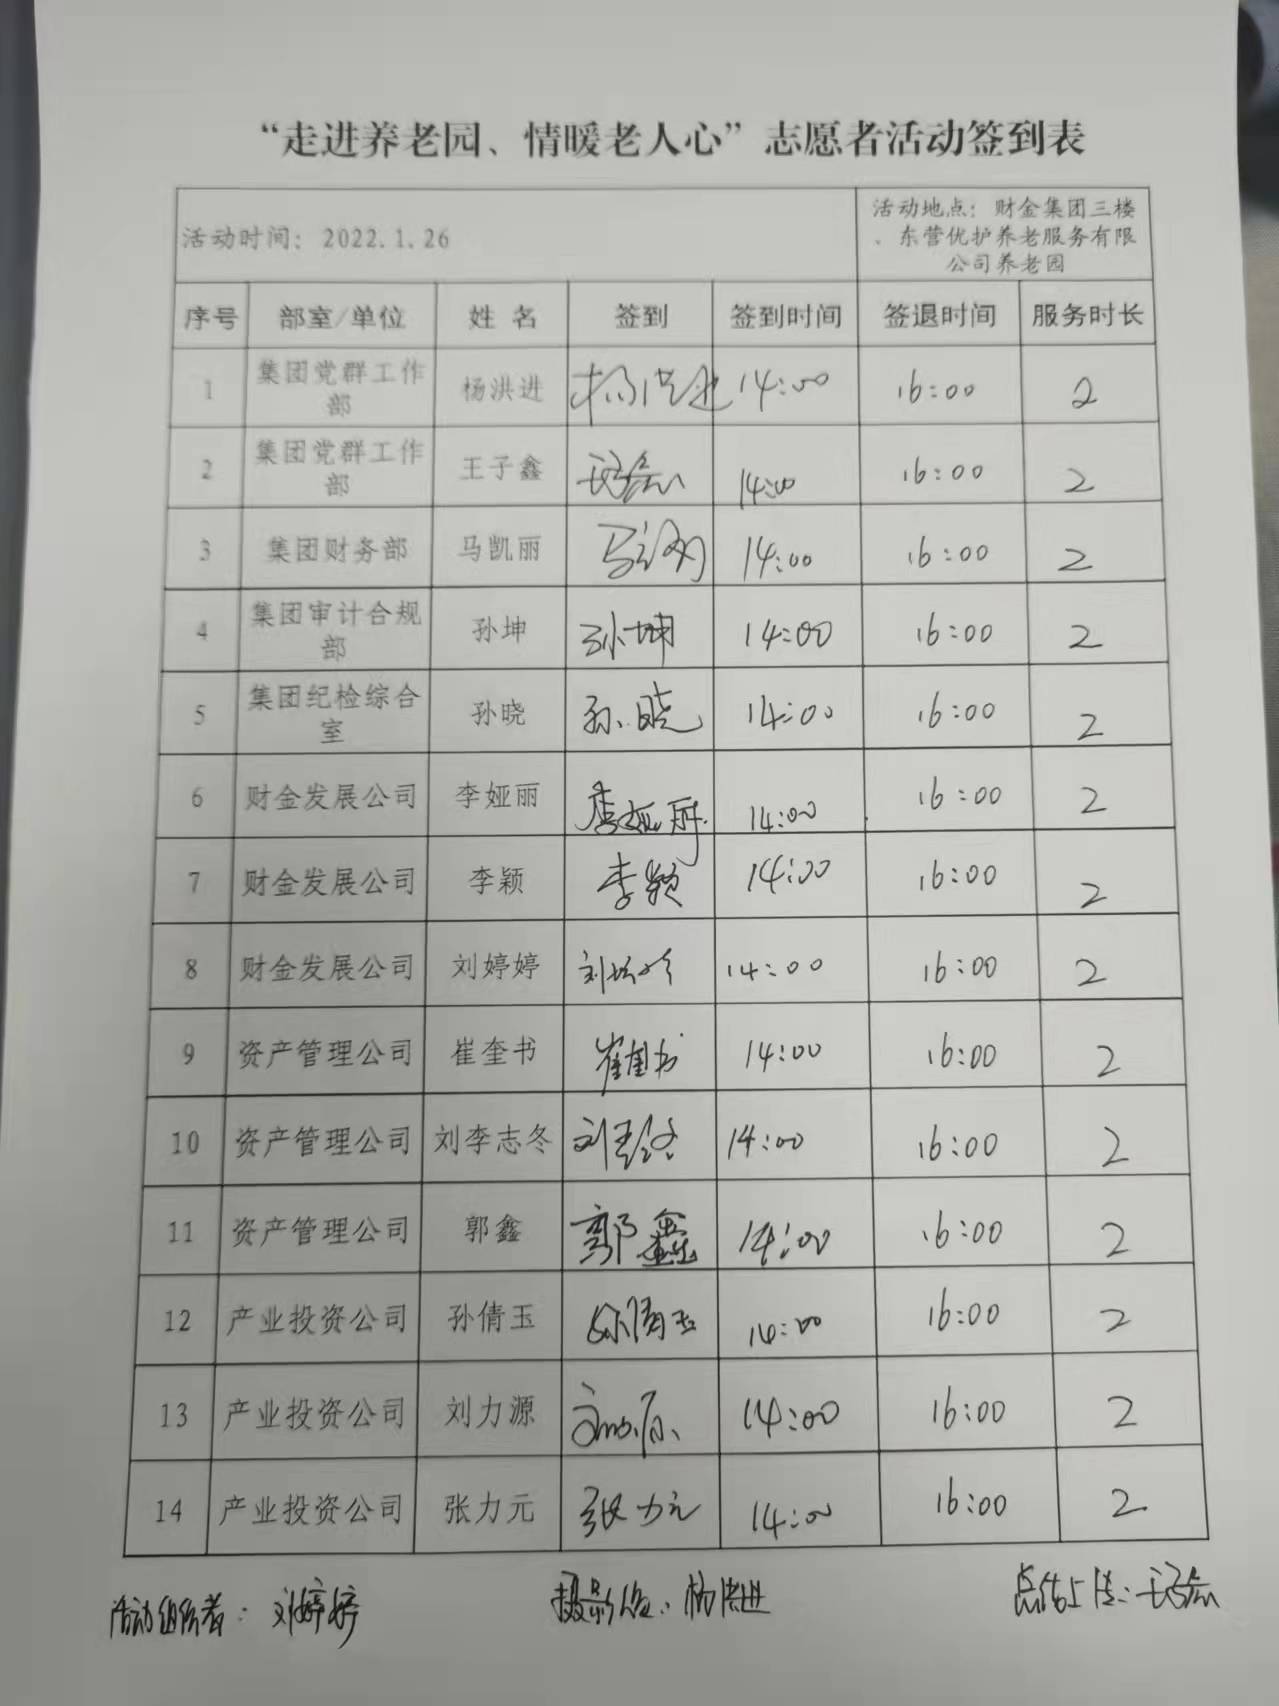 “走进养老园、情暖老人心”志愿者活动签到表
活动时间：2022.1.26
活动地点：财金集团三楼
、东营优护养老服务有限
公司养老园
序号 部室/单位 姓名 签到 签到时间 签退时间 服务时长
1 集团党群工作部 杨洪进 杨洪进 14:00 16:00 2
2 集团党群工作部 王子鑫 王子鑫 14:00 16:00 2
3 集团财务部 马凯丽 马凯丽 14:00 16:00 2
4 集团审计合规部 孙坤 孙坤 14:00 16:00 2
5 集团纪检综合室 孙晓 孙晓 14:00 16:00 2
6 财金发展公司 李娅丽 李娅丽 14:00 16:00 2
7 财金发展公司 李颖 李颖 14:00 16:00 2
8 财金发展公司 刘婷婷 刘婷婷 14:00 16:00 2
9 资产管理公司 崔奎书 崔奎书 14:00 16:00 2
10 资产管理公司 刘李志冬 刘李志冬 14:00 16:00 2
11 资产管理公司 郭鑫 郭鑫 14:00 16:00 2
12 产业投资公司 孙倩玉 孙倩玉 14:00 16:00 2
13 产业投资公司 刘力源 刘力源 14:00 16:00 2
14 产业投资公司 张力元 张力元 14:00 16:00 2
活动组织者：刘婷婷 摄影人员：杨洪进 总结上传：王子鑫